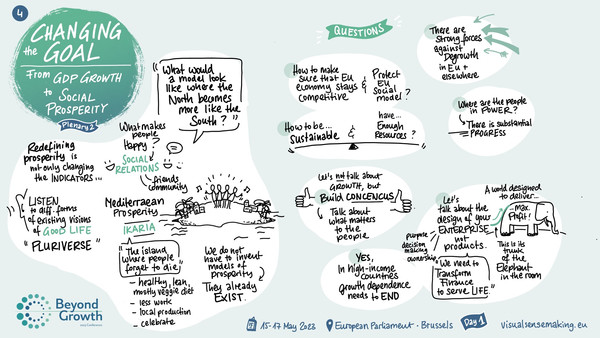 4
CHANGING
the GOAL
From GDP GROWTH
to SOCIAL
PROSPERITY
Plenary 2
Redefining
prosperity is
not only changing
the INDICATORS...
LISTEN
to diff. forms
of existing visions
of GOOD LIFE
"PLURIVERSE"
"What would
a model look
like where the
North becomes
more like the
South?"
What makes
people
Happy?
SOCIAL
RELATIONS
friends
community
Mediterranean
Prosperity
IKARIA
"The island
where people
forget to die"
- healthy, lean,
mostly veggie diet
- less work
- local production
- celebrate
We do not
have to invent
models of
prosperity
They already
EXIST.
QUESTIONS
How to make
sure that EU
economy stays
competitive
&
Protect
EU
social
model?
How to be...
Sustainable
&
have...
Enough
Resources?
Let's not talk about
GROWTH, but
Build CONCENCUS
Talk about
what matters
to the
people
YES,
In high-income
countries
growth dependence
needs to END
There are
strong forces
against
Degrowth
in EU +
elsewhere
Where are the people
in POWER?
There is substantial
PROGRESS
Let's
talk about the
design of your
ENTERPRISE
not
products.
purpose
decision
making
ownership
"We need to
Transform
Finance
to serve LIFE"
A world designed
to deliver...
max.
Profit!
This is the
trunk
of the
Elephant
in the room
Beyond
Growth
15-17 May 2023
European Parliament · Brussels
Day 1
visualsensemaking.eu